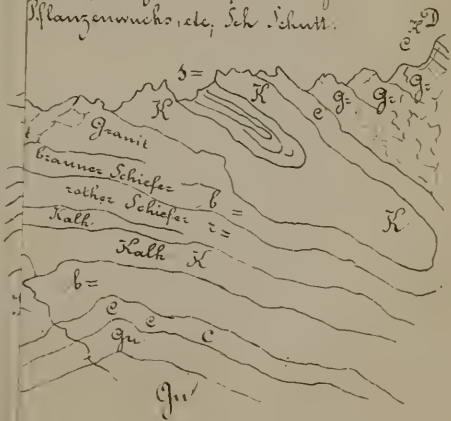 Pflanzenwuchs, etc; Sch Schutt.
c K D
s = K K e G= G= G=
Granit
brauner Schiefer b =
rother Schiefer r =
Kalk K
Kalk K
b =
c c c
Gn
Gn